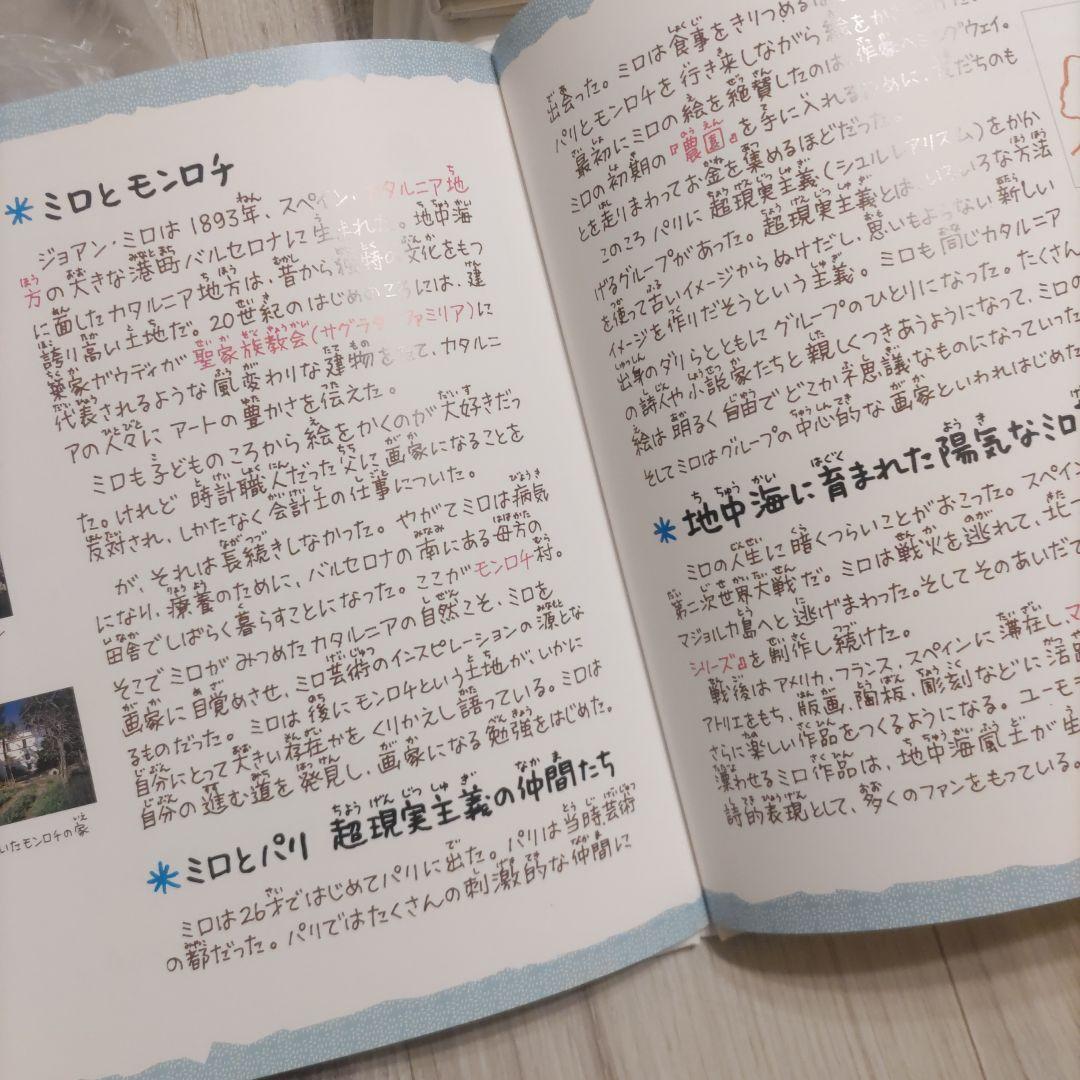 ミロとモンロチ
ジョアン・ミロは1893年、スペイン、カタルニア地
方の大きな港町バルセロナに生まれた。地中海
に面したカタルニア地方は、昔から独特の文化をもつ
誇り高い土地だ。20世紀のはじめのころには、建
築家ガウディが聖家族教会(サグラダ・ファミリア)に
代表されるような風変わりな建物を建て、カタルニ
アの人々にアートの豊かさを伝えた。
ミロも子どものころから絵をかくのが大好きだっ
た。けれど時計職人だった父に画家になることを
反対され、しかたなく会計士の仕事についた。
が、それは長続きしなかった。やがてミロは病気
になり、療養のために、バルセロナの南にある母方の
田舎でしばらく暮らすことになった。ここがモンロチ村。
そこでミロがみつめたカタルニアの自然こそ、ミロを
画家に目覚めさせ、ミロ芸術のインスピレーションの源とな
るものだった。ミロは後にモンロチという土地が、いかに
自分にとって大きい存在かをくりかえし語っている。ミロは
自分の進む道を発見し、画家になる勉強をはじめた。
いたモンロチの家
ミロとパリ 超現実主義の仲間たち
ミロは26才ではじめてパリに出た。パリは当時芸術
の都だった。パリではたくさんの刺激的な仲間に
出会った。ミロは食事をきりつめ
パリとモンロチを行き来しながら絵をか
最初にミロの絵を絶賛したのは、作家ヘミングウェイ。
ミロの初期の『農園』を手に入れるために、友だちのも
とを走りまわってお金を集めるほどだった。
このころパリに超現実主義(シュルレアリスム)をかか
げるグループがあった。超現実主義とは、いろいろな方法
を使って古いイメージからぬけだし、思いもよらない新しい
イメージを作りだそうという主義。ミロも同じカタルニア
出身のダリらとともにグループのひとりになった。たくさん
の詩人や小説家たちと親しくつきあうようになって、ミロの
絵は明るく自由でどこか不思議なものになっていった
そしてミロはグループの中心的な画家といわれはじめた
地中海に育まれた陽気なミロ
ミロの人生に暗くつらいことがおこった。スペイン
第二次世界大戦だ。ミロは戦火を逃れて、北
マジョルカ島へと逃げまわった。そしてそのあいだ
シリーズ』を制作し続けた。
戦後はアメリカ、フランス、スペインに滞在し、マ
アトリエをもち、版画、陶板、彫刻などに活
さらに楽しい作品をつくるようになる。ユーモ
漂わせるミロ作品は、地中海風土が生
詩的表現として、多くのファンをもっている。